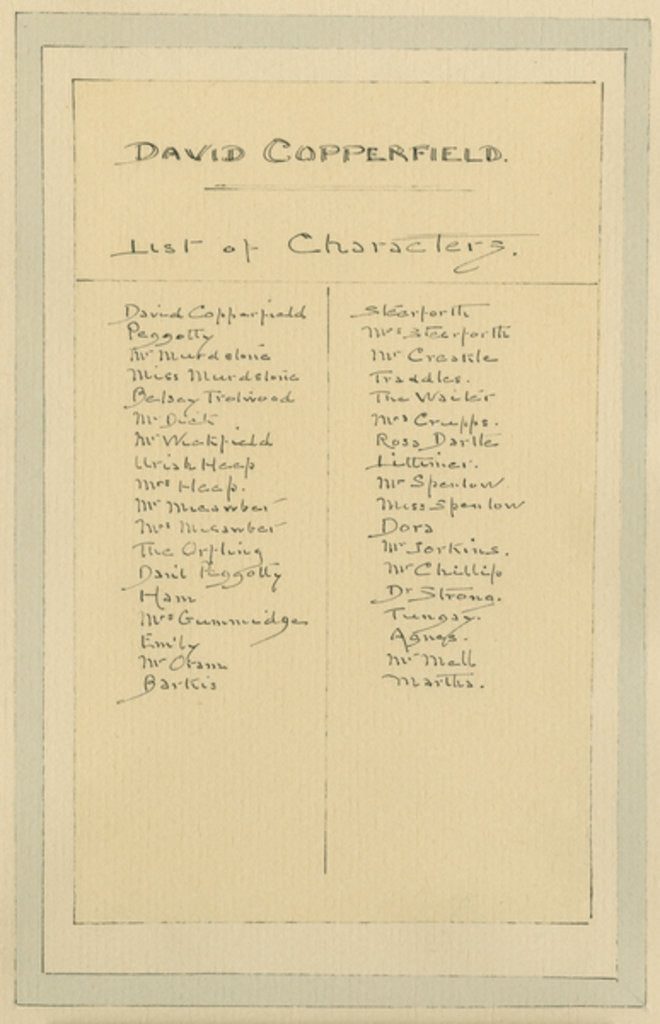 DAVID COPPERFIELD.
List of Characters.
David Copperfield
Peggotty
Mr Murdstone
Miss Murdstone
Betsey Trotwood
Mr Dick
Mr Wickfield
Uriah Heep
Mrs Heep.
Mr Micawber
Mrs Micawber
The Orfling
Danl Peggotty
Ham
Mrs Gummidge
Emily
Mr Omer
Barkis
Steerforth
Mrs Steerforth
Mr Creakle
Traddles.
The Waiter
Mrs Crupps.
Rosa Dartle
Littimer.
Mr Spenlow
Miss Spenlow
Dora
Mr Jorkins.
Mr Chillip
Dr Strong.
Tungay.
Agnes.
Mr Mell
Martha.